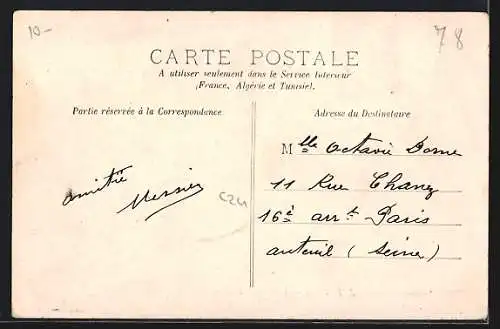 10-
78
CARTE POSTALE
A utiliser seulement dans le Service Intérieur
(France, Algérie et Tunisie).
Partie réservée à la Correspondance
Adresse du Destinataire
amitié
Messier
C2411
Mlle Octavie Dome
11 Rue Chanez
16è arrt Paris
auteuil (Seine)